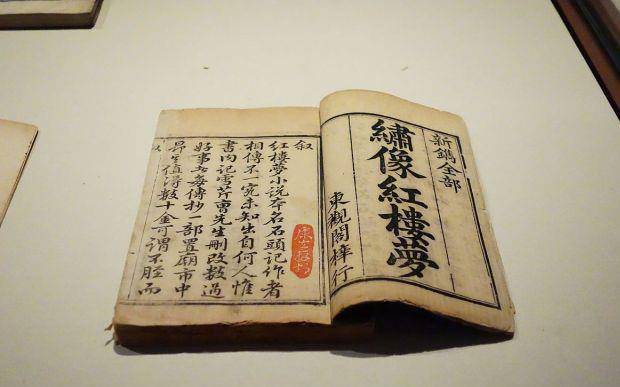 新鐫全部
繡像紅樓夢
東觀閣梓行
叙
紅樓夢小説本名石頭記作者
相傳不一究未知出自何人惟
書内記雪芹曹先生刪改數過
好事者每傳抄一部置廟市中
昻其值得數十金可謂不脛而